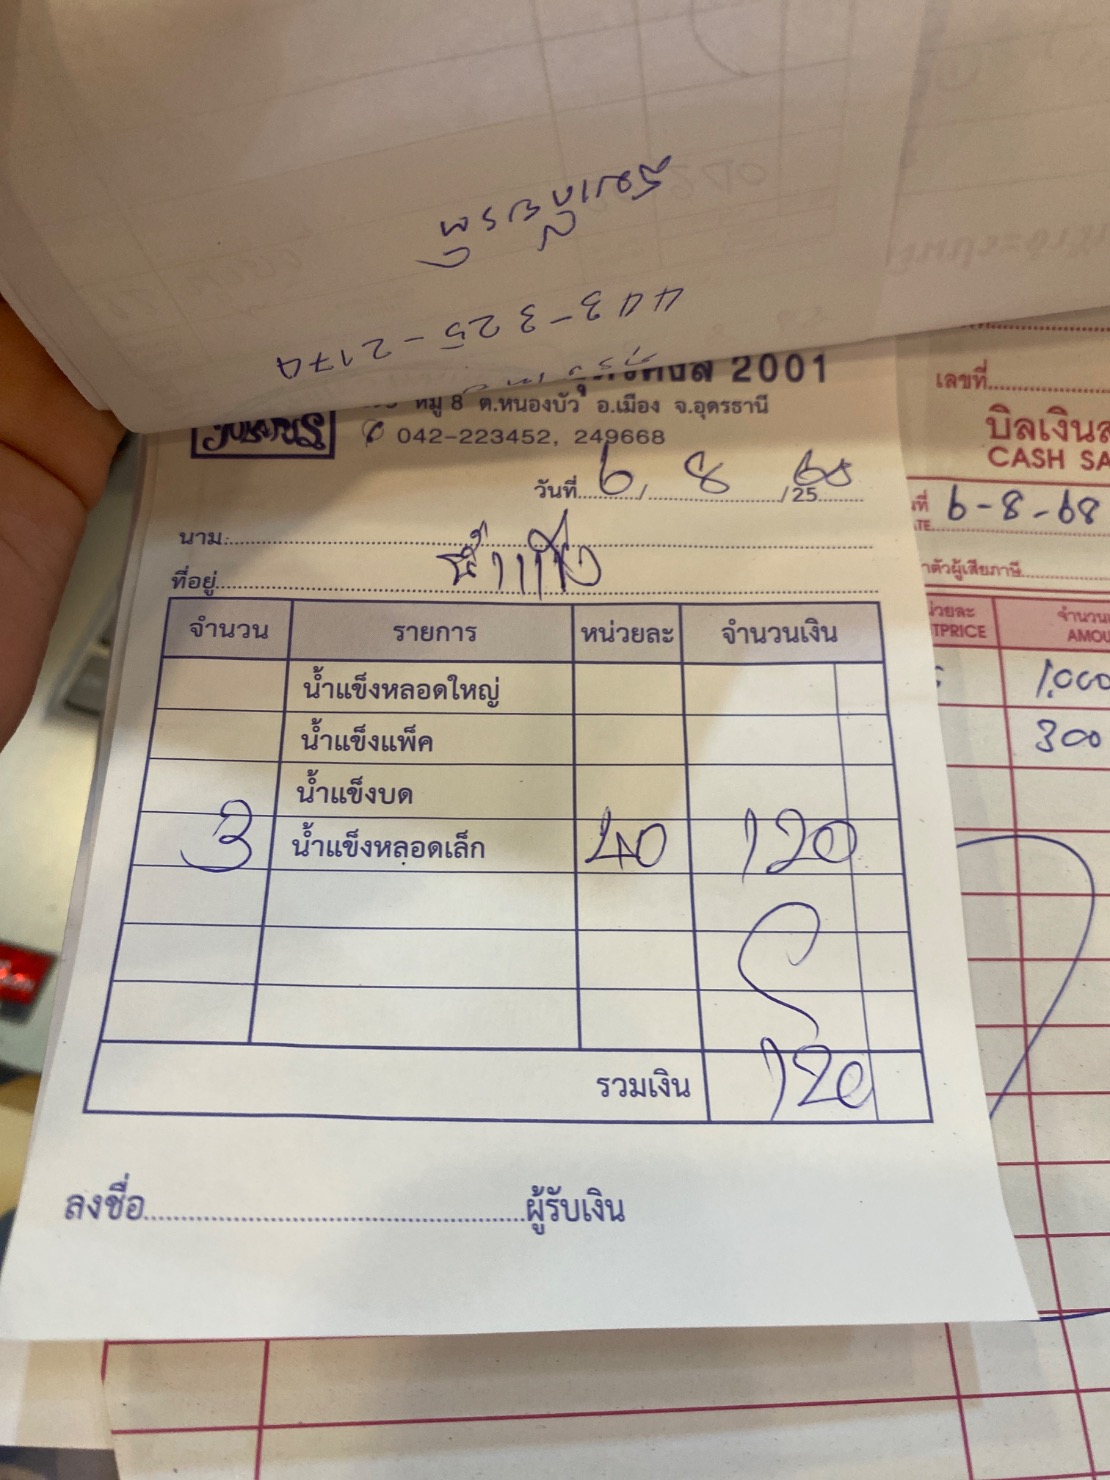 443-325-2174
2001
หมู่ 8 ต.หนองบัว อ.เมือง จ.อุดรธานี
042-223452, 249668
วันที่ 6 / 8 / 25 68
นาม
น้ำแข็ง
ที่อยู่
จำนวน รายการ หน่วยละ จำนวนเงิน
น้ำแข็งหลอดใหญ่
น้ำแข็งแพ็ค
น้ำแข็งบด
3 น้ำแข็งหลอดเล็ก 40 120
รวมเงิน 120
ลงชื่อ ผู้รับเงิน
เลขที่
บิลเงินส
CASH SA
6-8-68
ตัวผู้เสียภาษี
น่วยละ จำนวน
TPRICE AMOU
1,000
300